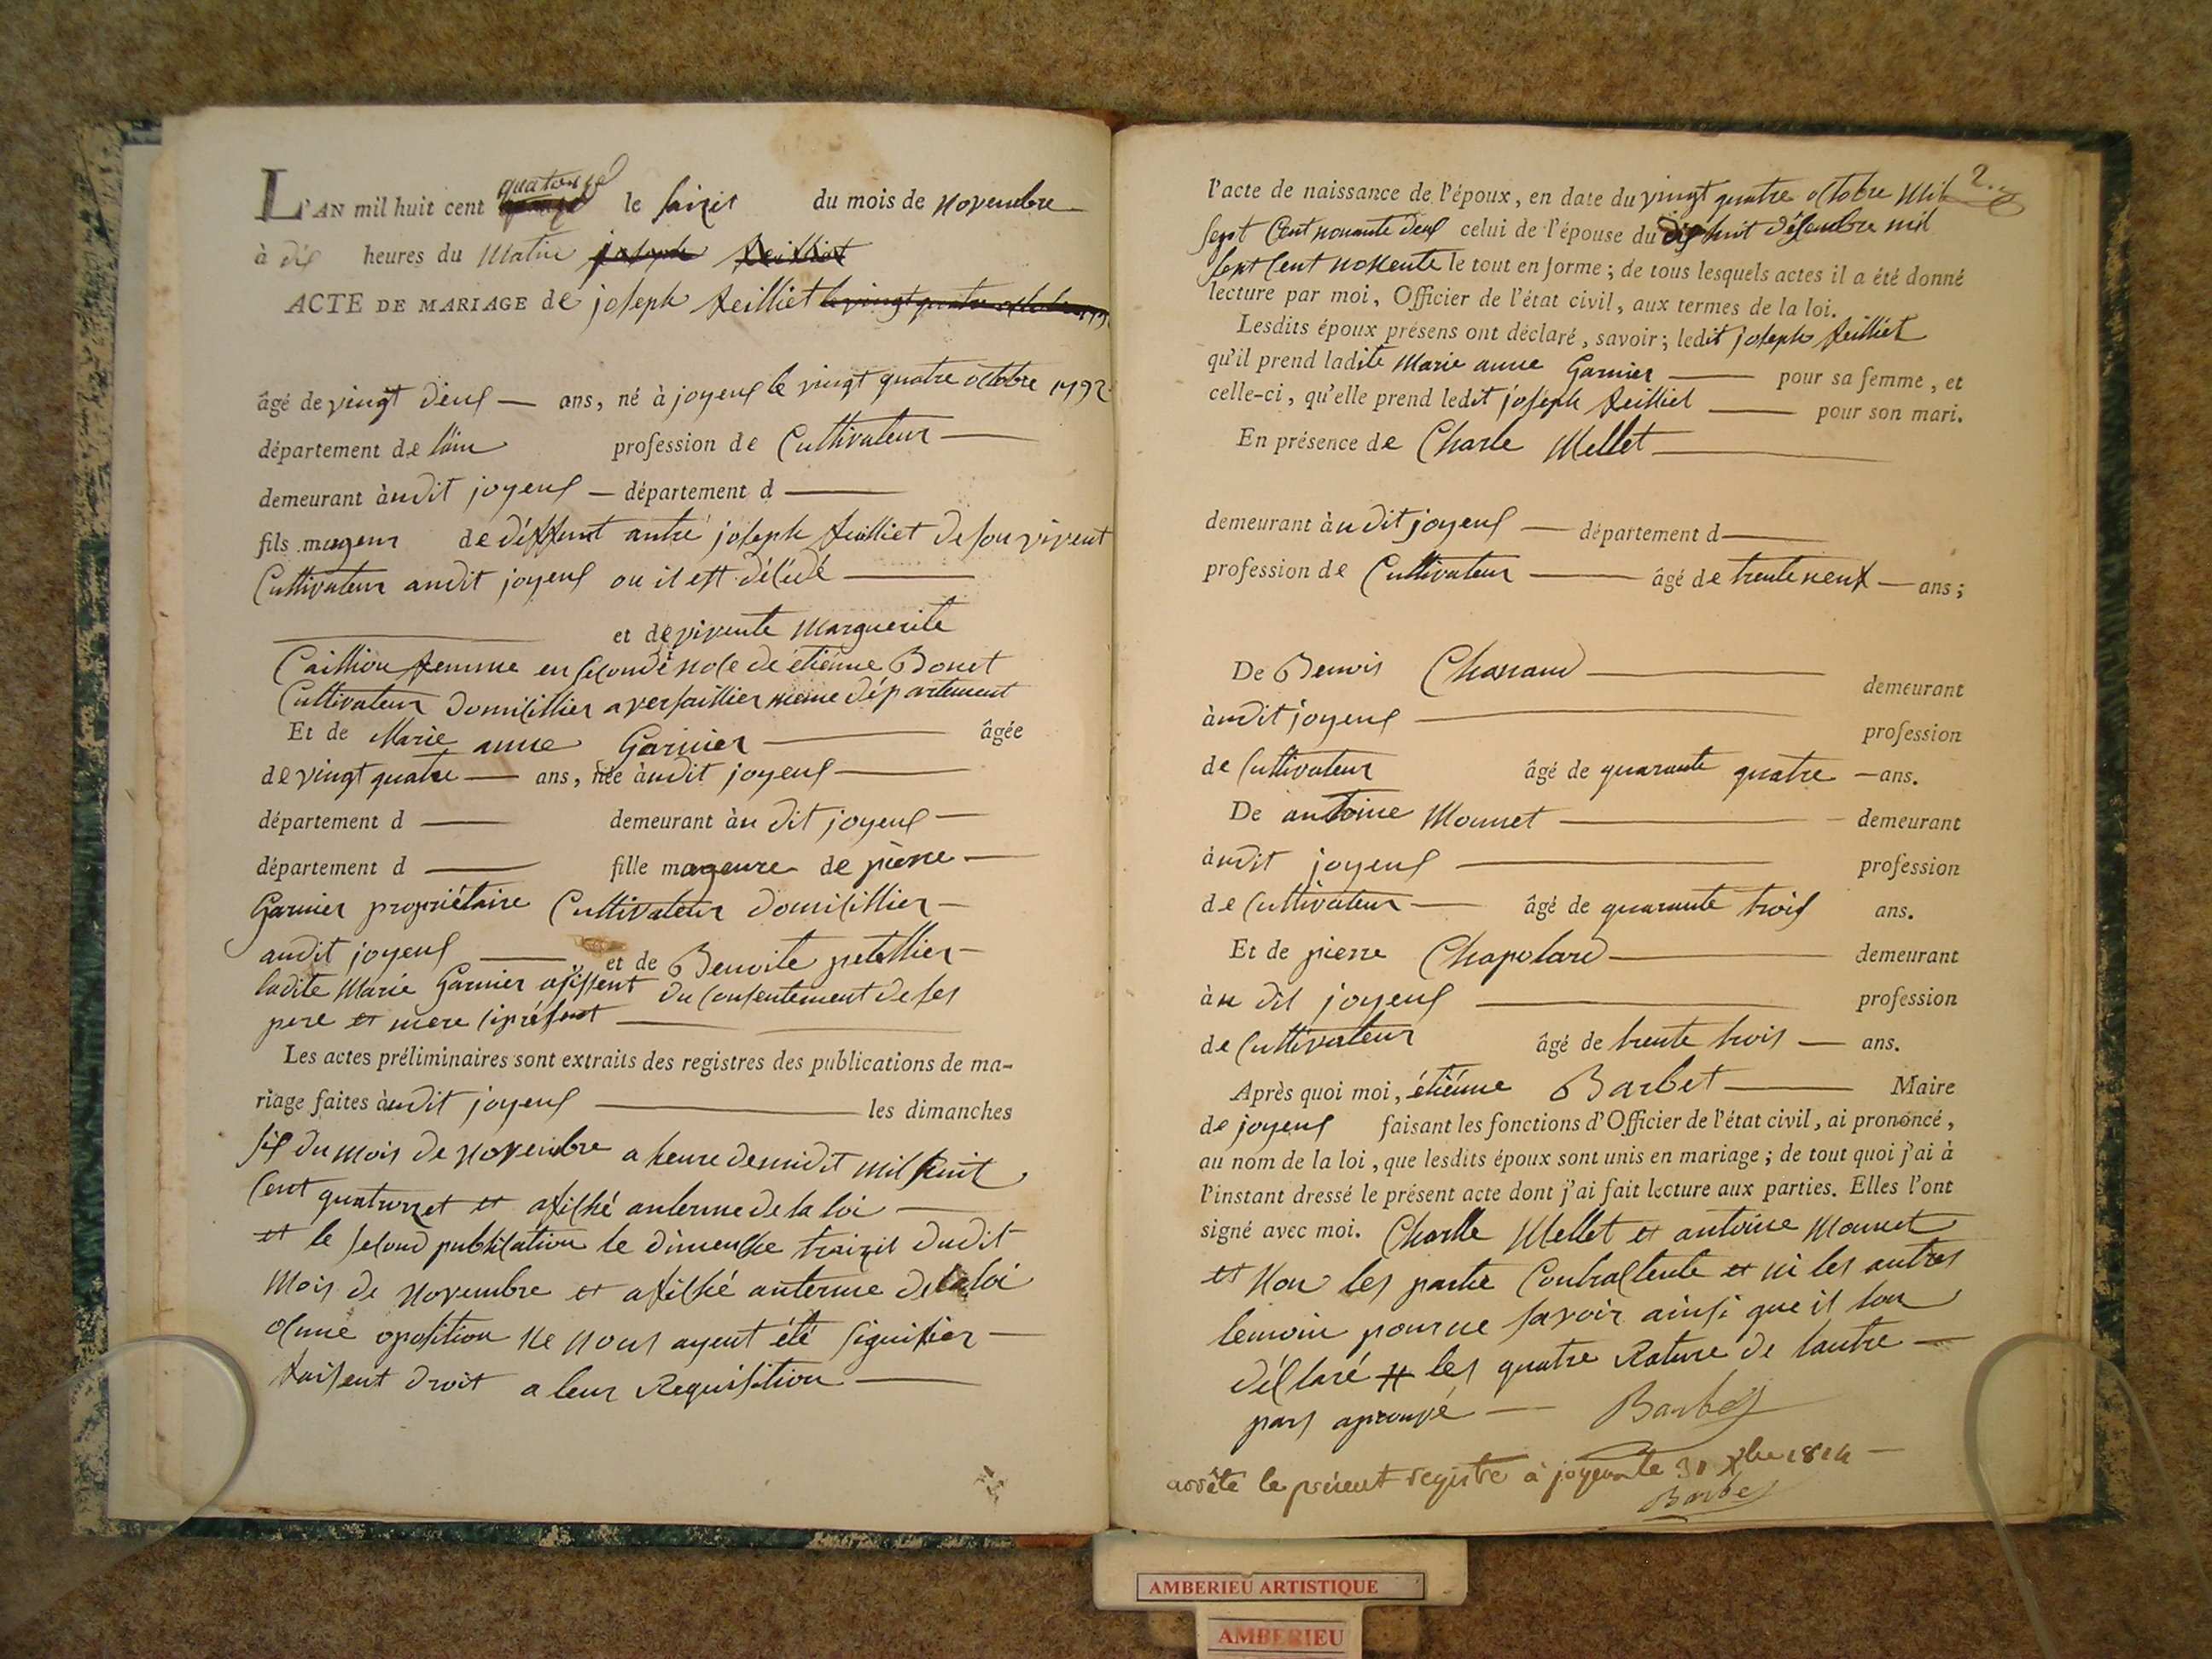 L'AN mil huit cent quatorze le saizit du mois de Novembre
à dis heures du Matin joseph feilliet
ACTE DE MARIAGE de joseph feilliet le vingt quatre octobre 179
âgé de vingt deux — ans, né à joyeux le vingt quatre octobre 1792
département de l'ain profession de Cultivateur —
demeurant àudit joyeux — département d —
fils mageur de déffunt autre joseph feilliet de son vivent
Cultivateur audit joyeux ou il est décédé —
et de vivente Marguerite
Caillion femme en seconde nose de étiénne Bonet
Cultivateur domicillier a versaillier meme département
Et de Marie anne Garnier — âgée
de vingt quatre — ans, née àudit joyeux —
département d — demeurant àu dit joyeux —
département d — fille mageure de pierre —
Garnier propriétaire Cultivateur domicillier —
audit joyeux — et de Benoite petellier —
ladite Marie Garnier asistent du consentement de ses
pere et mere si présent —
Les actes préliminaires sont extraits des registres des publications de ma-
riage faites àudit joyeux — les dimanches
six du mois de Novembre a heure de midit mil huit
Cent quatorzet et afiché anterme de la loi —
et le second publication le dimenche traizit dudit
Mois de Novembre et afiché anterme de la loi
ocune oposition ne nous ayent été signifier —
faisent droit a leur Requisition —
2.
l'acte de naissance de l'époux, en date du vingt quatre octobre Mil
sept Cent nonante deux celui de l'épouse du dix huit désembre mil
sept Cent nonente le tout en forme ; de tous lesquels actes il a été donné
lecture par moi, Officier de l'état civil, aux termes de la loi.
Lesdits époux présens ont déclaré, savoir ; ledit joseph feilliet
qu'il prend ladite Marie anne Garnier — pour sa femme, et
celle-ci, qu'elle prend ledit joseph feilliet — pour son mari.
En présence de Charle Mellet —
demeurant àudit joyeux — département d —
profession de Cultivateur — âgé de trente neuf — ans ;
De Benois Chanaud —
demeurant
àudit joyeux —
profession
de Cultivateur âgé de quarante quatre — ans.
De antoine Mounet — demeurant
àudit joyeux — profession
de Cultivateur — âgé de quarante trois ans.
Et de pierre Chapolard — demeurant
àu dit joyeux — profession
de Cultivateur âgé de trente trois — ans.
Après quoi moi, étiénne Barbet — Maire
de joyeux faisant les fonctions d'Officier de l'état civil, ai prononcé,
au nom de la loi, que lesdits époux sont unis en mariage ; de tout quoi j'ai à
l'instant dressé le présent acte dont j'ai fait lecture aux parties. Elles l'ont
signé avec moi. Charlle Mellet et antoine Mounet
et Non les partie Contractente et ni les autres
temoin pour ne savoir ainsi que il l'on
déclaré # les quatre Rature de l'autre —
pars aprouvé — Barbet
arrêté le présent registre à joyeux le 31 Xbre 1814 —
Barbet
AMBERIEU ARTISTIQUE
AMBERIEU